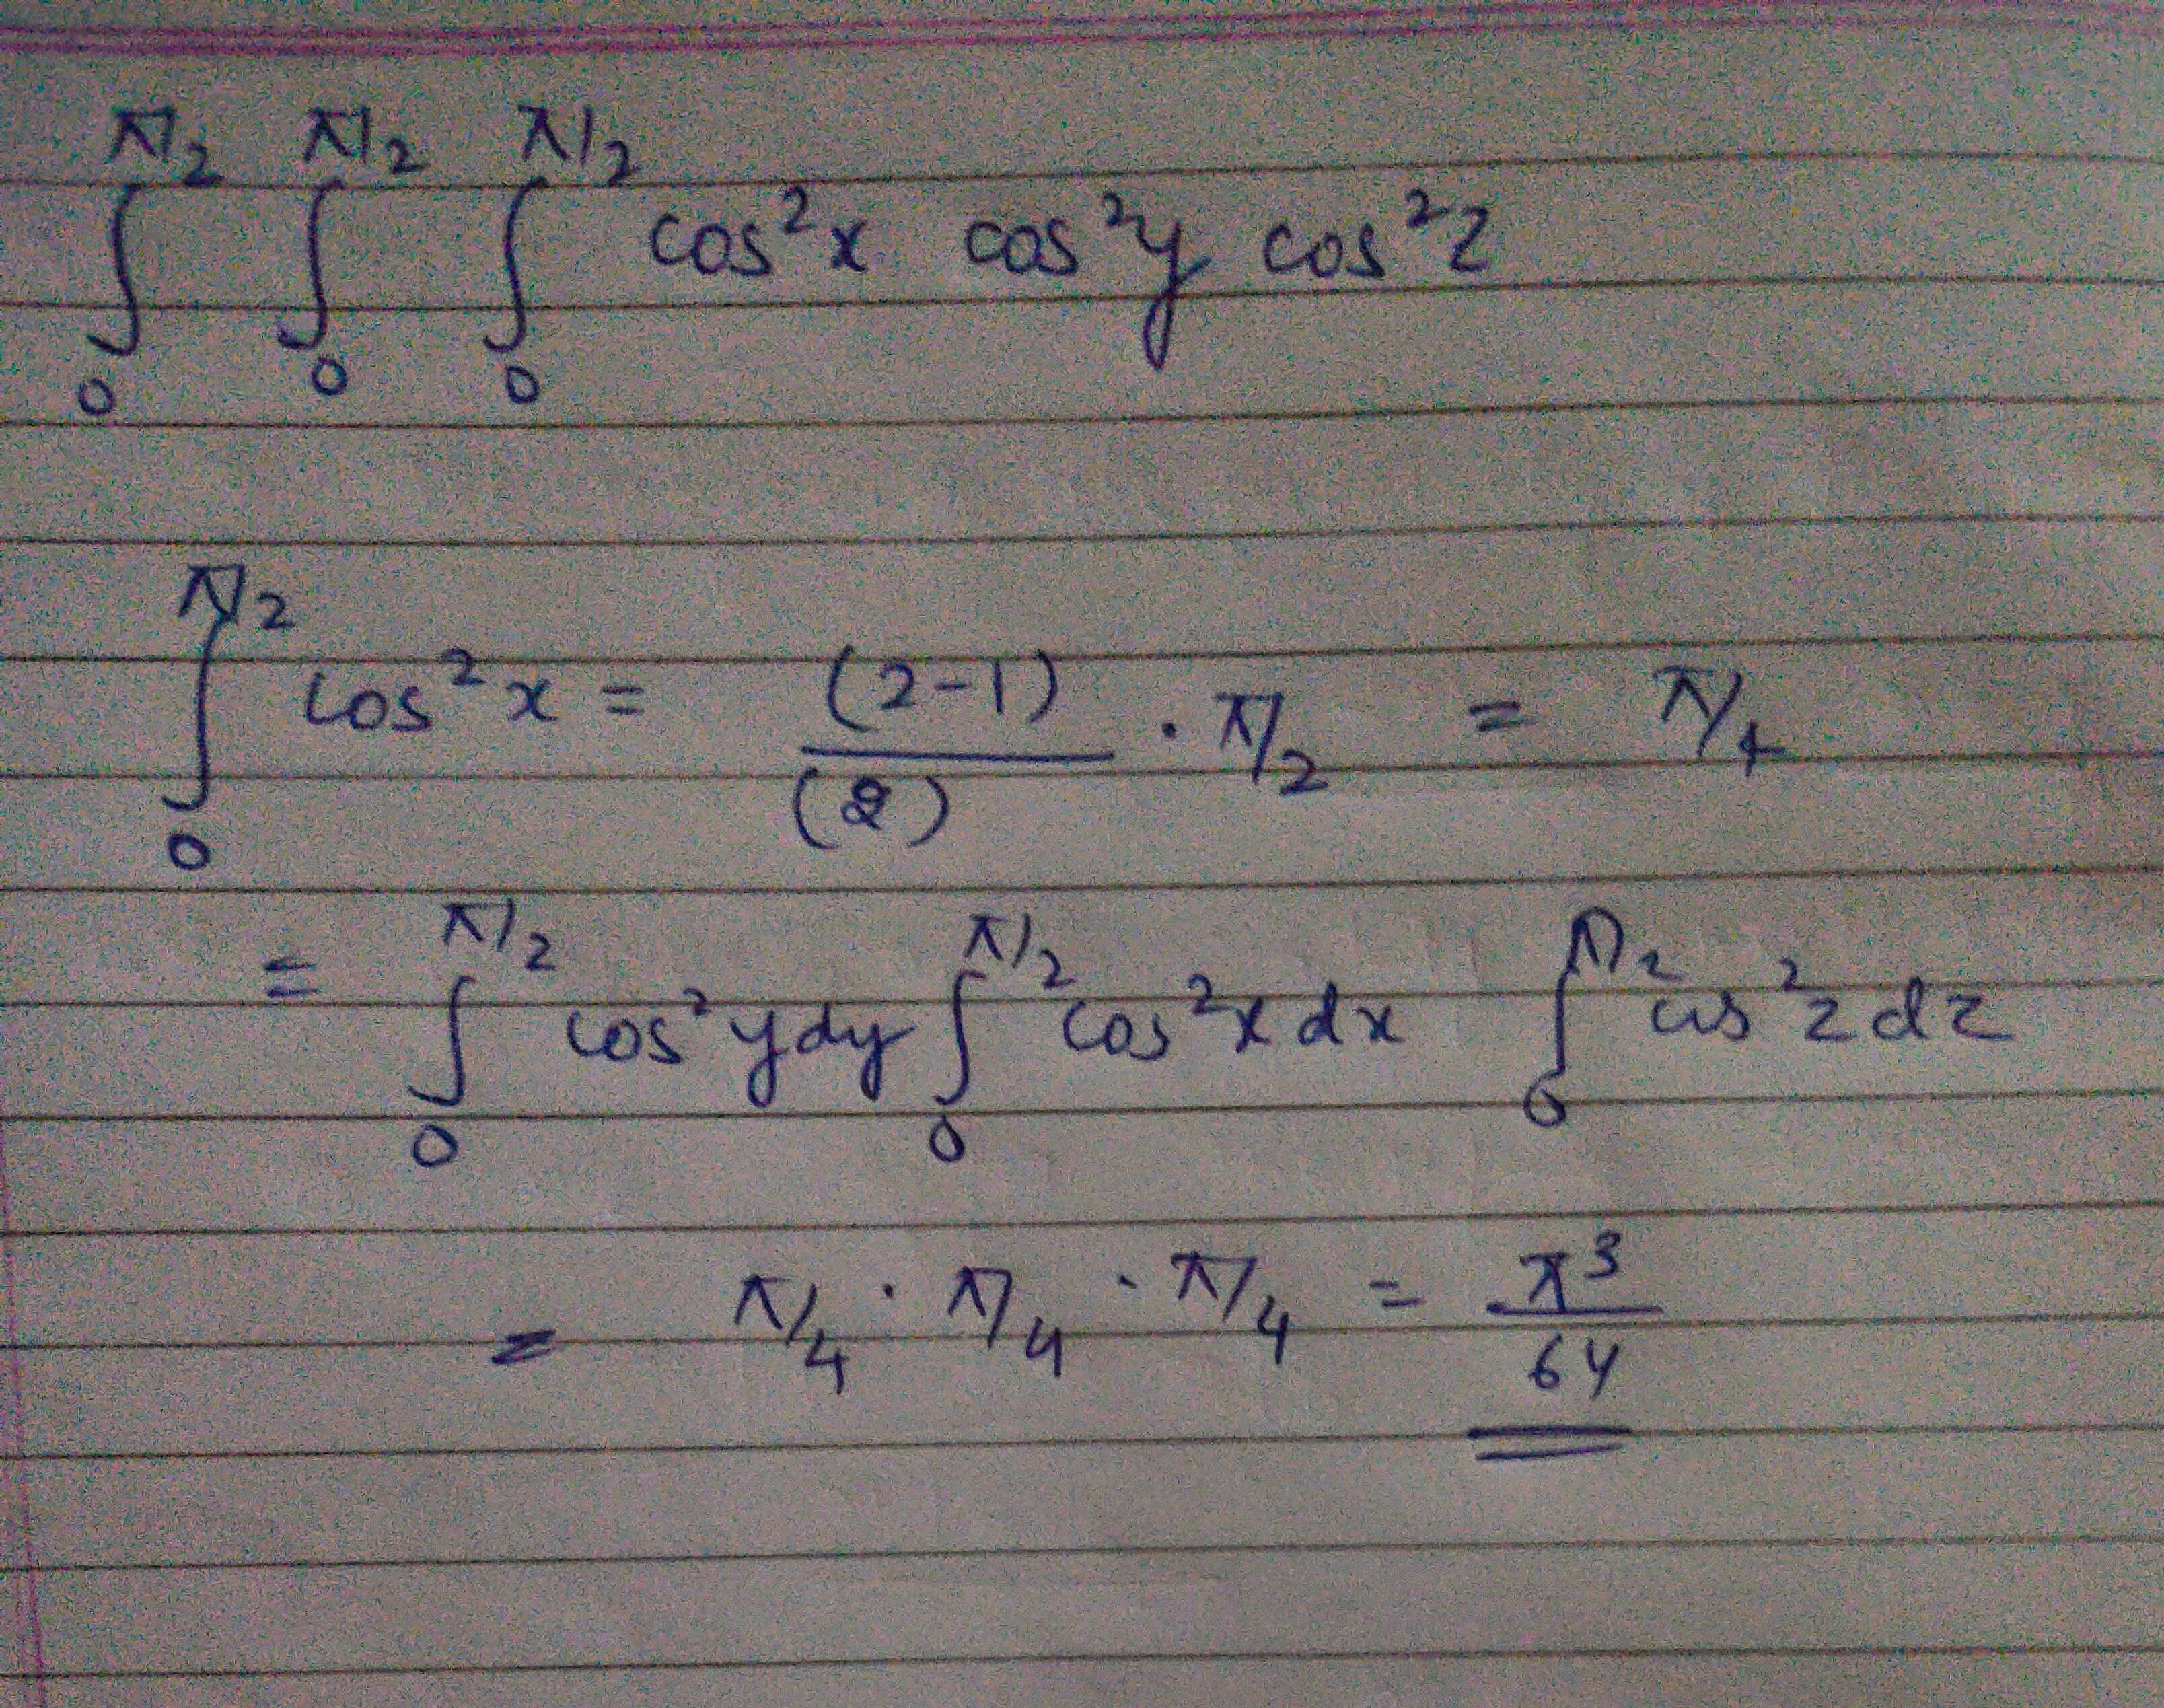 ∫₀^π/2 ∫₀^π/2 ∫₀^π/2 cos²x cos²y cos²z
∫₀^π/2 cos²x = (2-1)/(2) · π/2 = π/4
= ∫₀^π/2 cos²y dy ∫₀^π/2 cos²x dx ∫₀^π/2 cos²z dz
= π/4 · π/4 · π/4 = π³/64